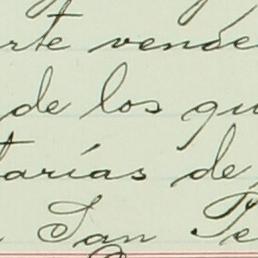 rte vende
de los qu
tarías de
San Pe